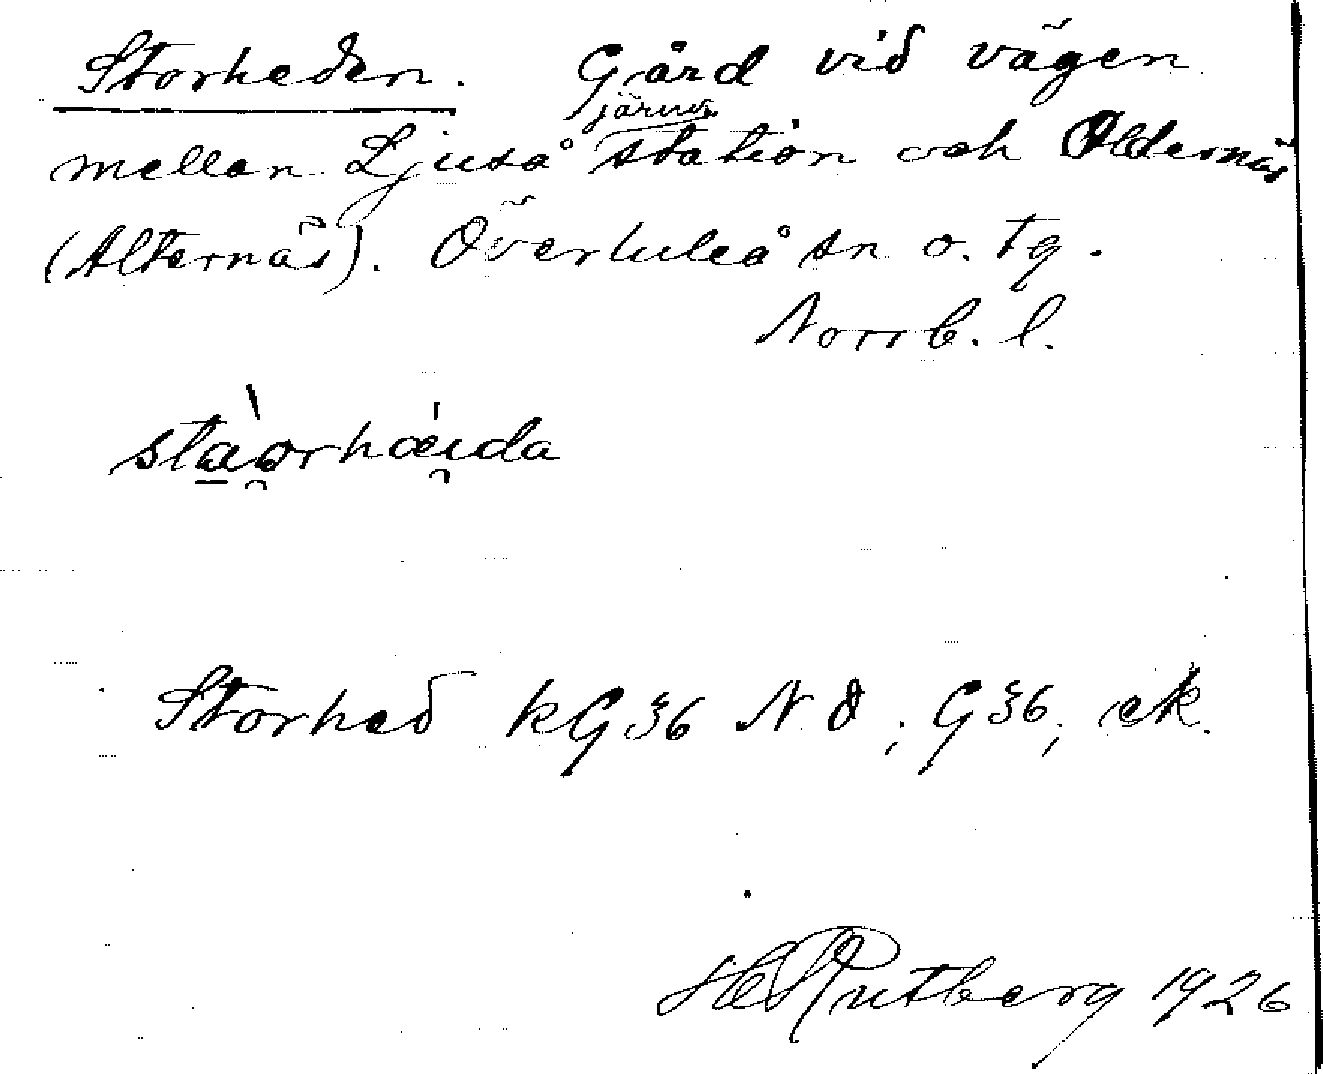 Storheden. Gård vid vägen
mellan Ljuså järnv. station och Aldernäs
(Alternäs). Överluleå sn o. tg.
Norrb. l.
stàorhæida
Storhed kG36 NO; G36; ek.
H Rutberg 1926